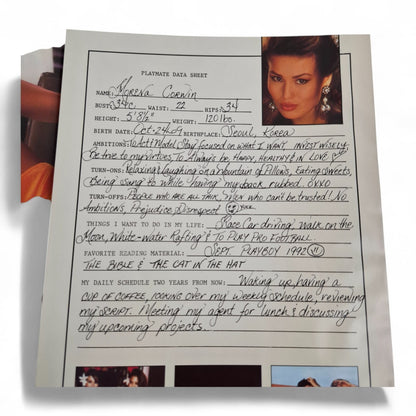 PLAYMATE DATA SHEET
NAME: Morena Corwin
BUST: 34C WAIST: 22 HIPS: 34
HEIGHT: 5' 8½" WEIGHT: 120 lbs.
BIRTH DATE: Oct-24-69 BIRTHPLACE: Seoul, Korea
AMBITIONS: To Act! Model, Stay focused on what I WANT, INVEST WISELY,
Be true to my virtues, To Always be HAPPY, HEALTHY & IN LOVE
TURN-ONS: Relaxing/laughing on a mountain of Pillows, Eating Sweets,
Being sung to while having my back rubbed. OXXO
TURN-OFFS: People who are all talk, Men who can't be trusted! No
Ambitions, Prejudice, Disrespect
THINGS I WANT TO DO IN MY LIFE: Race Car driving, walk on the
Moon, White-water Rafting & To PLAY PRO FOOTBALL.
FAVORITE READING MATERIAL: SEPT. PLAYBOY 1992
THE BIBLE & THE CAT IN THE HAT
MY DAILY SCHEDULE TWO YEARS FROM NOW: Waking up, having a
CUP OF COFFEE, looking over my weekly schedule, reviewing
my SCRIPT. Meeting my agent for lunch & discussing
my upcoming projects.